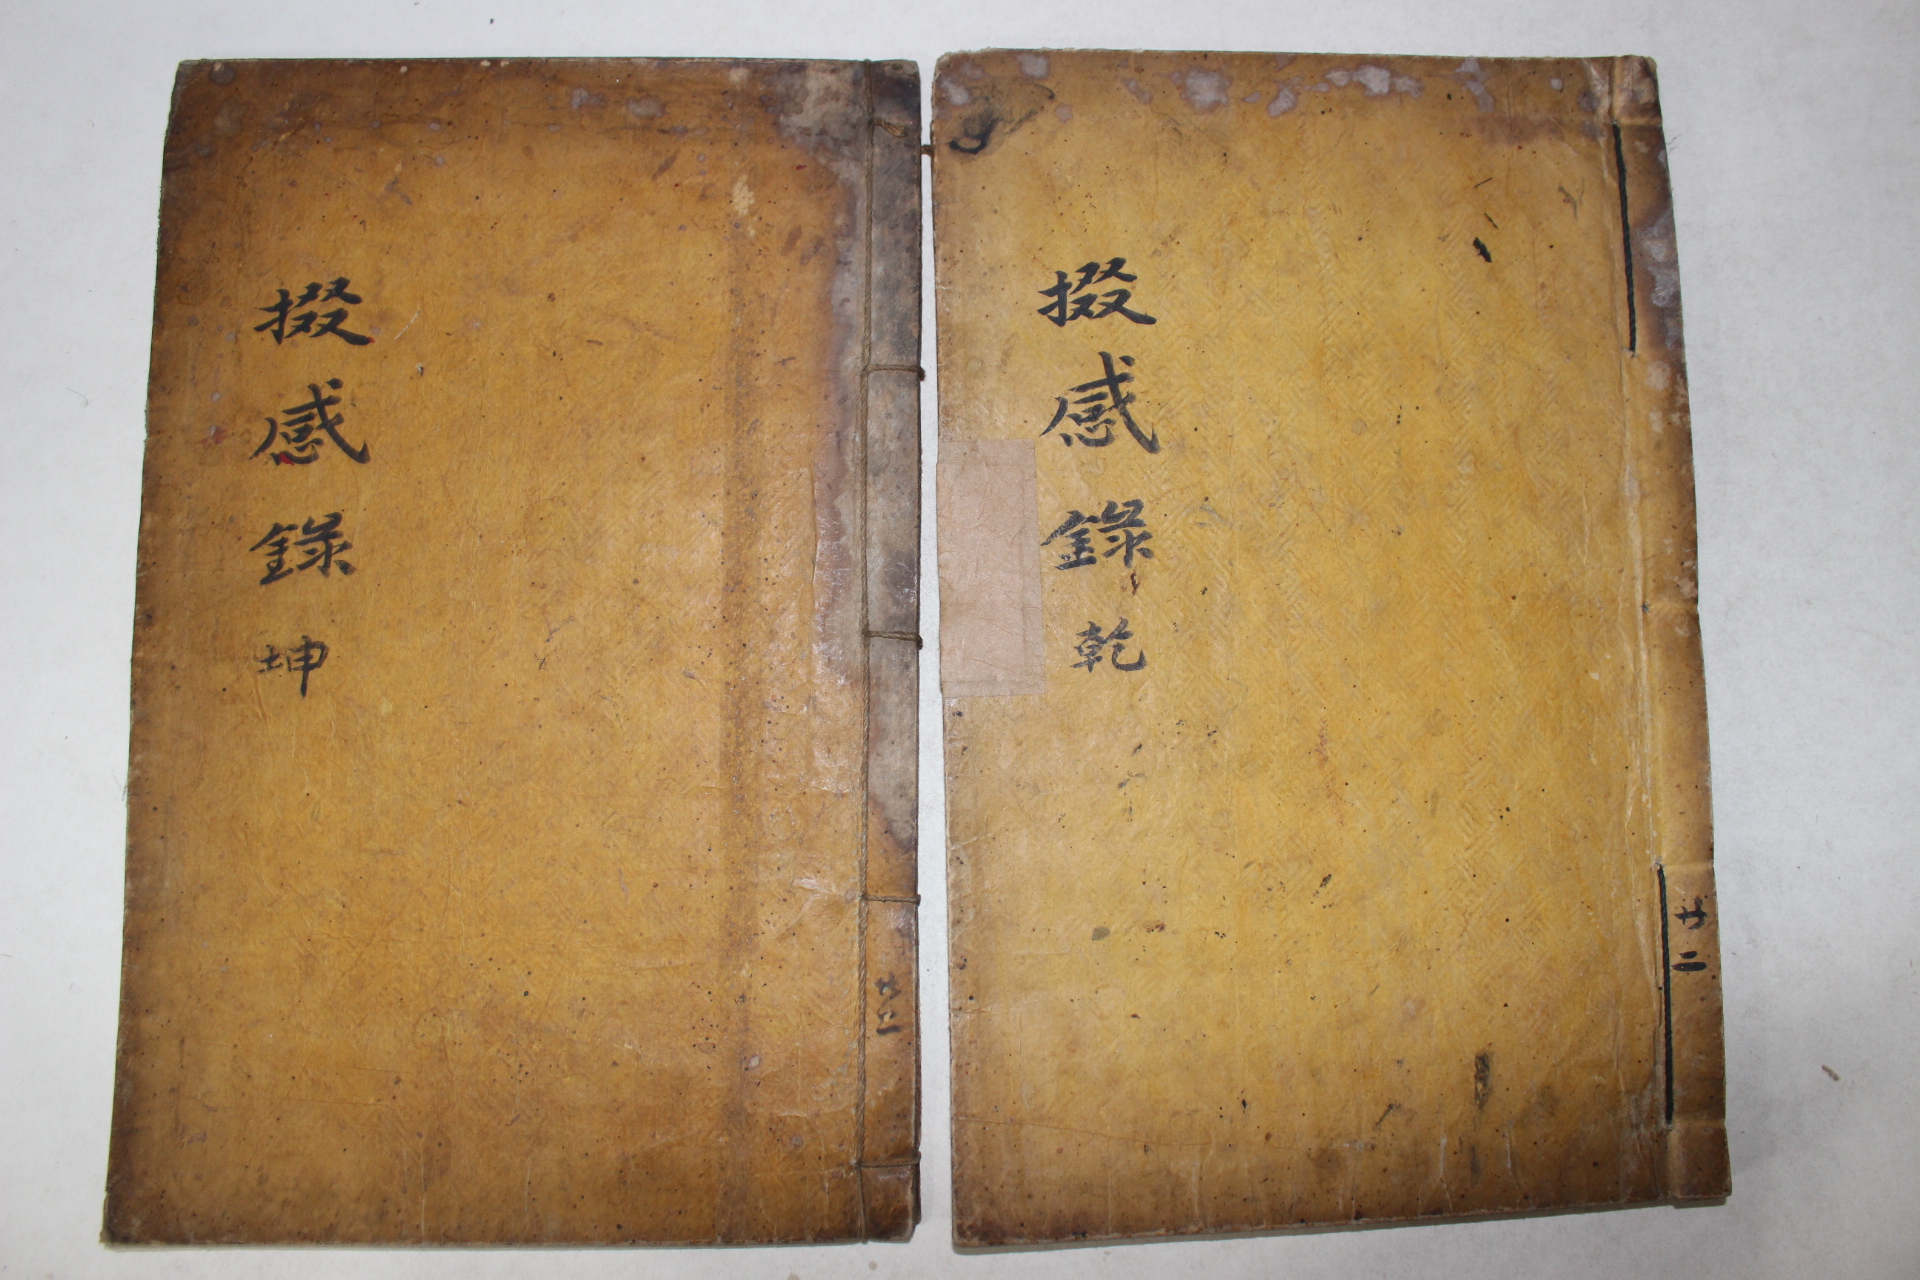 掇感錄 乾
廿二
掇感錄 坤